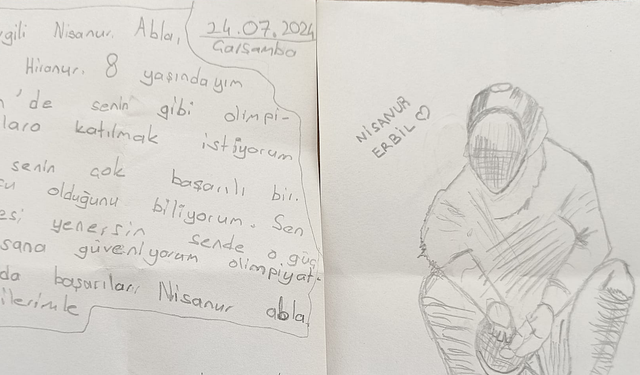 gili Nisanur Abla,
24.07.2024
Çarşamba
Hiranur. 8 yaşındayım
n'de senin gibi olimpi-
lara katılmak istiyorum
senin çok başarılı bir
cu olduğunu biliyorum. Sen
esi yenersin sende o güç
sana güveniyorum olimpiyat-
da başarılar Nisanur abla,
ilerimle
NİSANUR
ERBİL